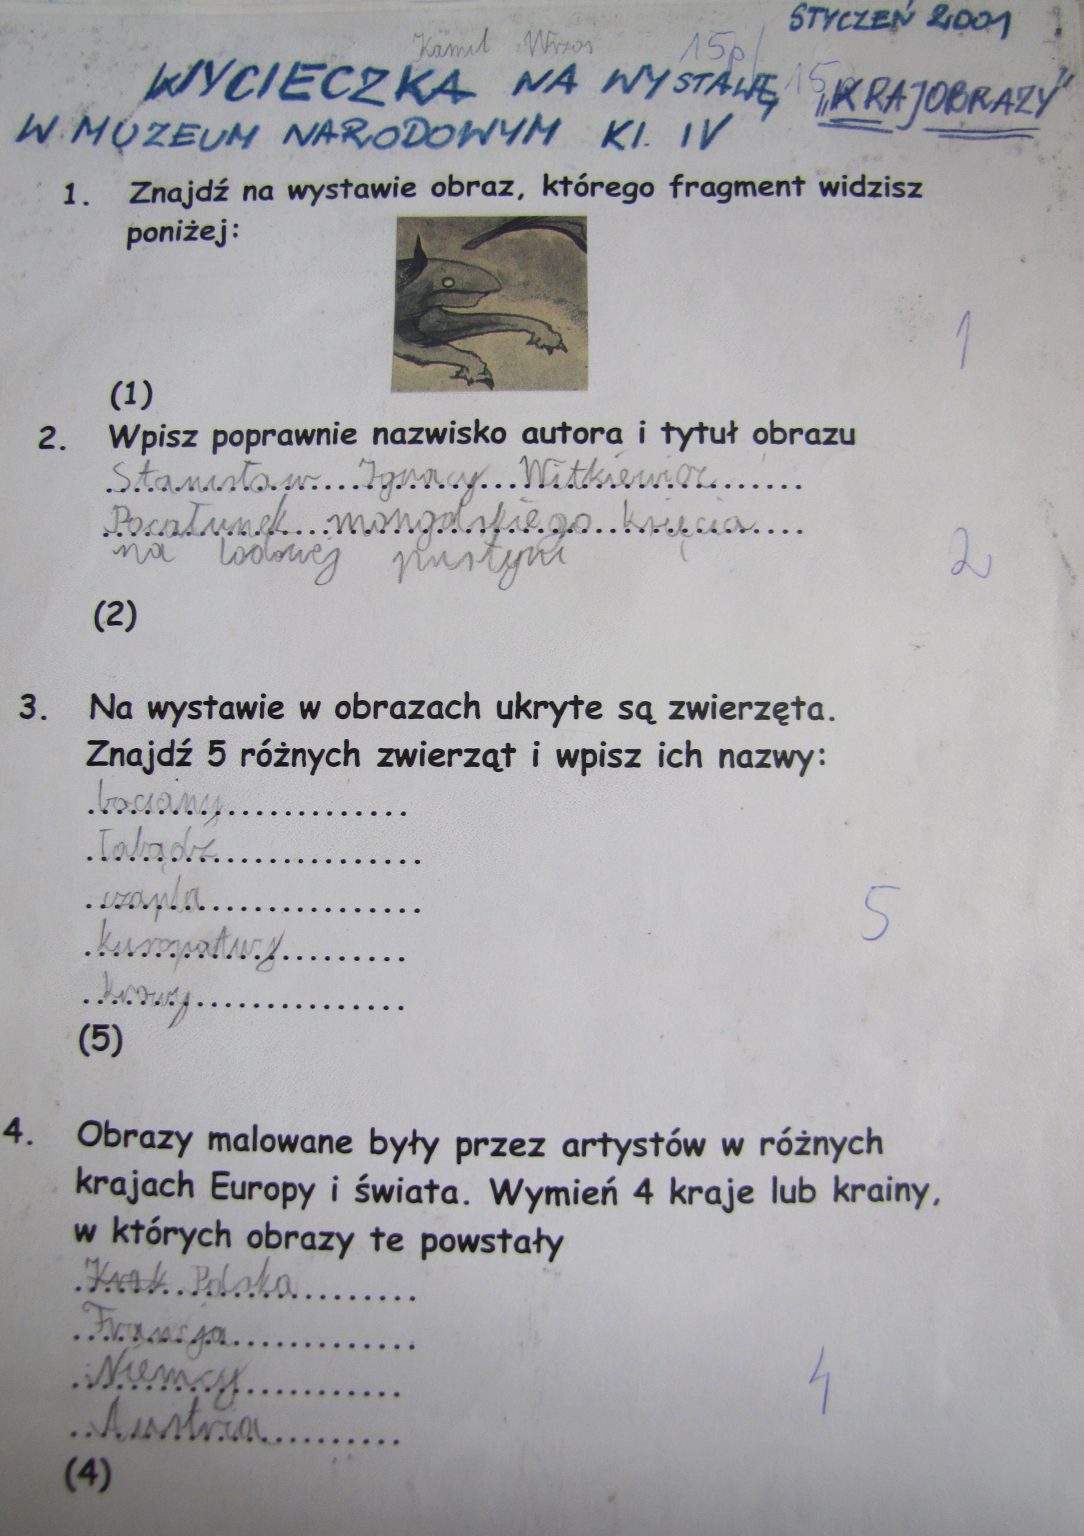 STYCZEŃ 2001
Kamil Wrzos 15p/15p
WYCIECZKA NA WYSTAWĘ „KRAJOBRAZY”
W MUZEUM NARODOWYM Kl. IV
1. Znajdź na wystawie obraz, którego fragment widzisz
poniżej:
1
(1)
2. Wpisz poprawnie nazwisko autora i tytuł obrazu
Stanisław Ignacy Witkiewicz
Pocałunek mongolskiego księcia
na lodowej pustyni
2
(2)
3. Na wystawie w obrazach ukryte są zwierzęta.
Znajdź 5 różnych zwierząt i wpisz ich nazwy:
bociany
łabędź
czapla
5
kuropatwy
krowy
(5)
4. Obrazy malowane były przez artystów w różnych
krajach Europy i świata. Wymień 4 kraje lub krainy,
w których obrazy te powstały
Polska
Francja
Niemcy
4
Austria
(4)